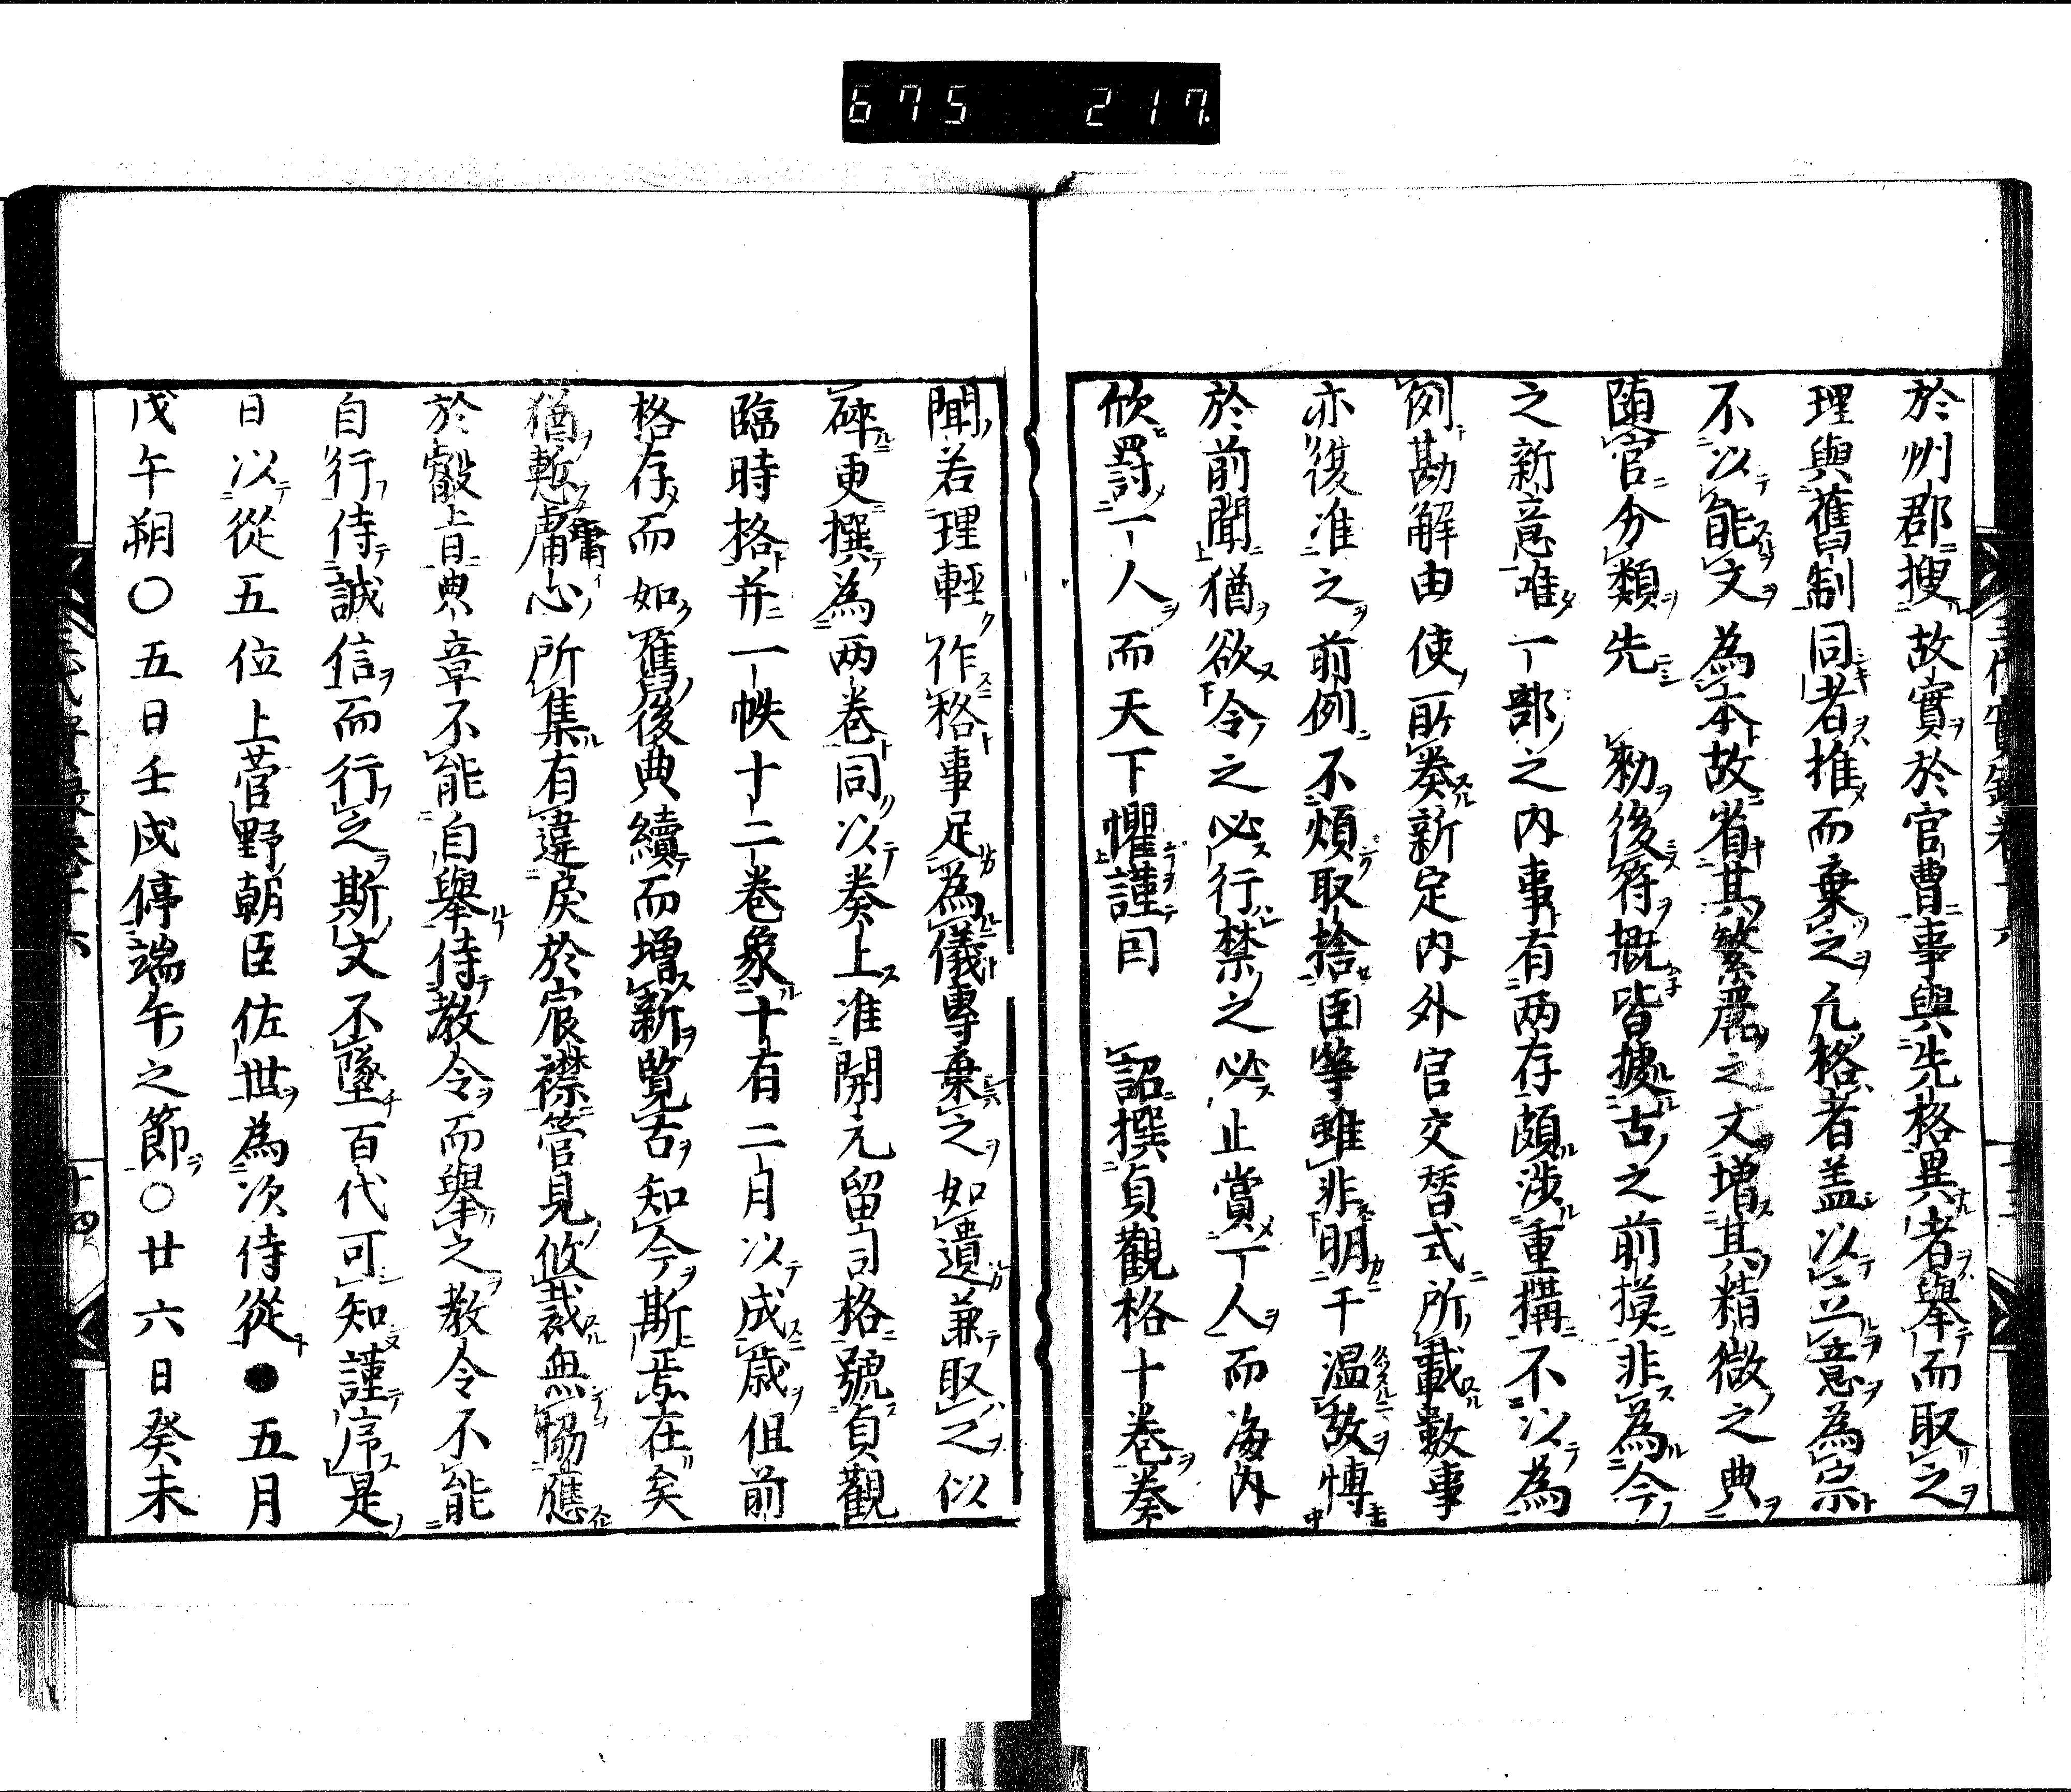 675 217.
於州郡搜故實於官曹事與先格異者舉而取之
理與舊制同者推而棄之凢格者盖以立意為宗
不以能文為本故省其繁麗之文增其精微之典
随官分類先 勑後符概皆據古之前摸非為今
之新意唯一部之内事有两存頗涉重搆不以為
例勘解由使所奏新定内外官交替式所載數事
亦復准之前例不煩取捨臣等雖非明干温故愽
於前聞猶欲令之必行禁之必止賞一人而海内
欣罸一人而天下懼謹曰 詔撰貞觀格十卷奏
聞若理輕作格事足為儀專棄之如遺兼取之似
碎更撰為两卷同以奏上准開元留司格號貞觀
臨時格并一帙十二卷象十有二月以成歳但前
格存而如舊後典續而增新覧古知今斯焉在矣
猶慙庸心所集有違戾於宸襟管見攸裁無恊應
於叡旨典章不能自舉待教令而舉之教令不能
自行待誠信而行之斯文不墜百代可知謹序是
日以從五位上菅野朝臣佐世為次侍從●五月
戊午朔○五日壬戌停端午之節○廿六日癸未
十四